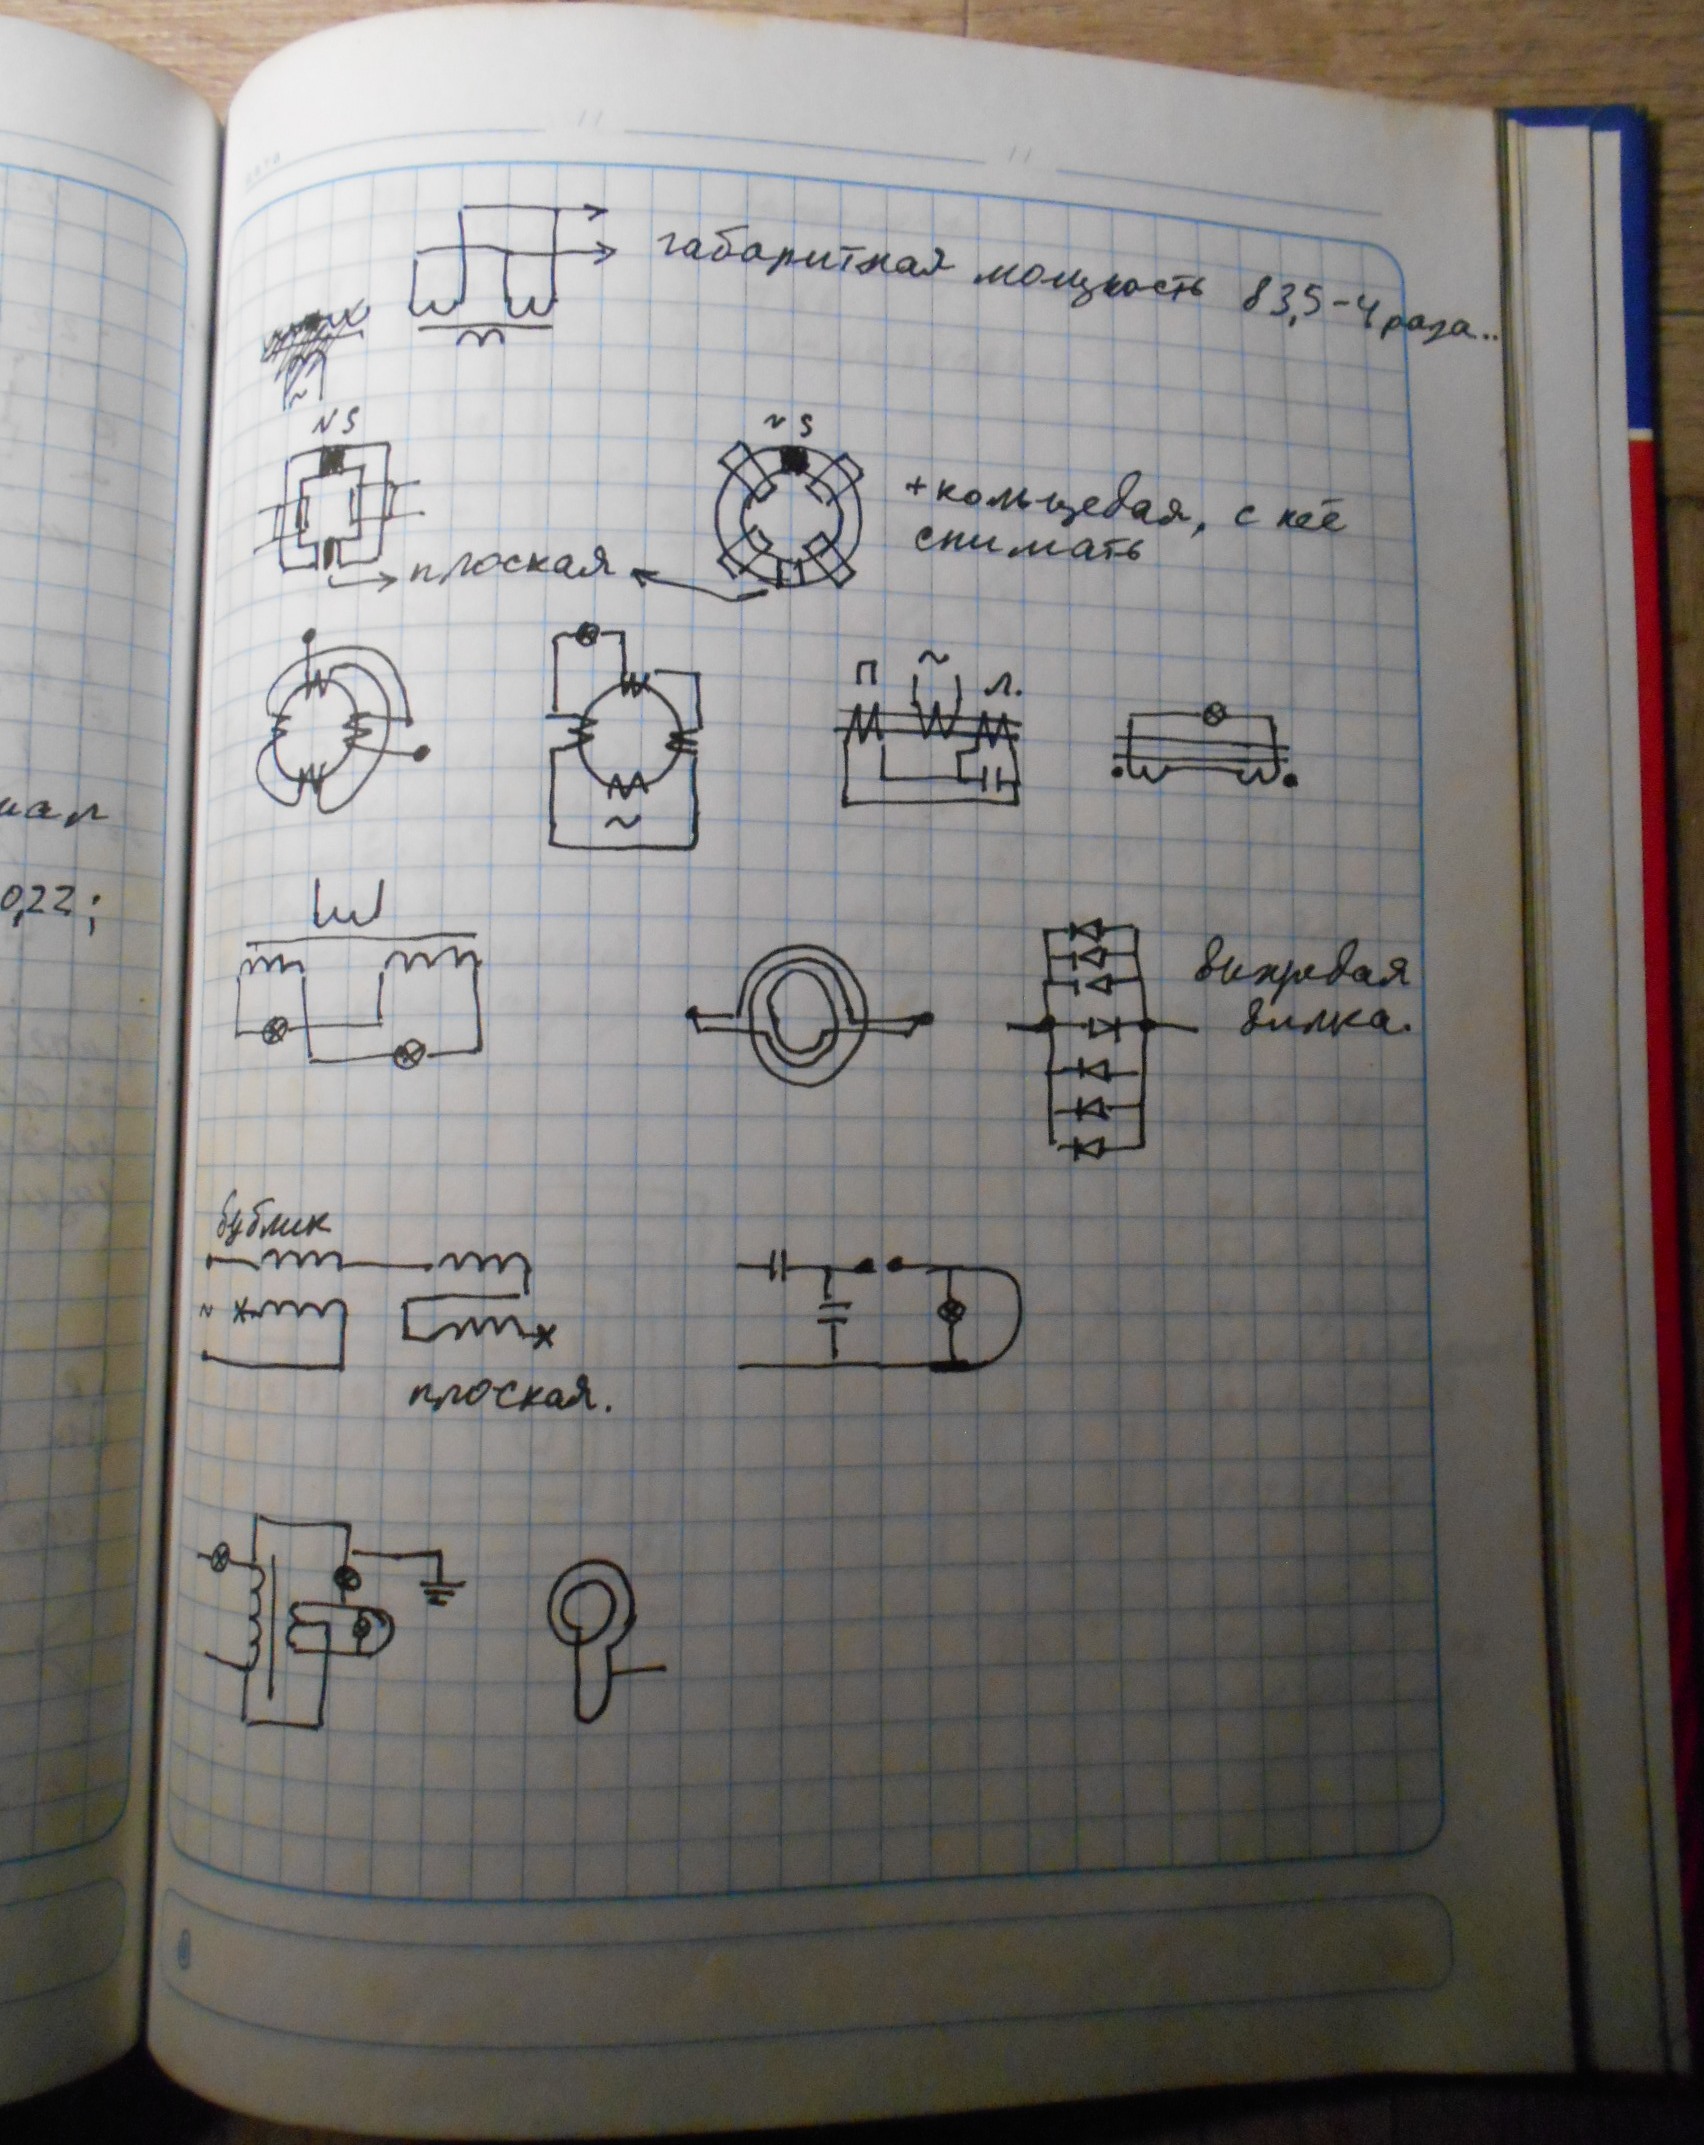 габаритная мощность в 3,5-4 раза..
~
N S
N S
+кольцевая, с неё
снимать
плоская
П ~ Л.
~
иал
0,22;
вихревая
вилка.
бублик
~
плоская.